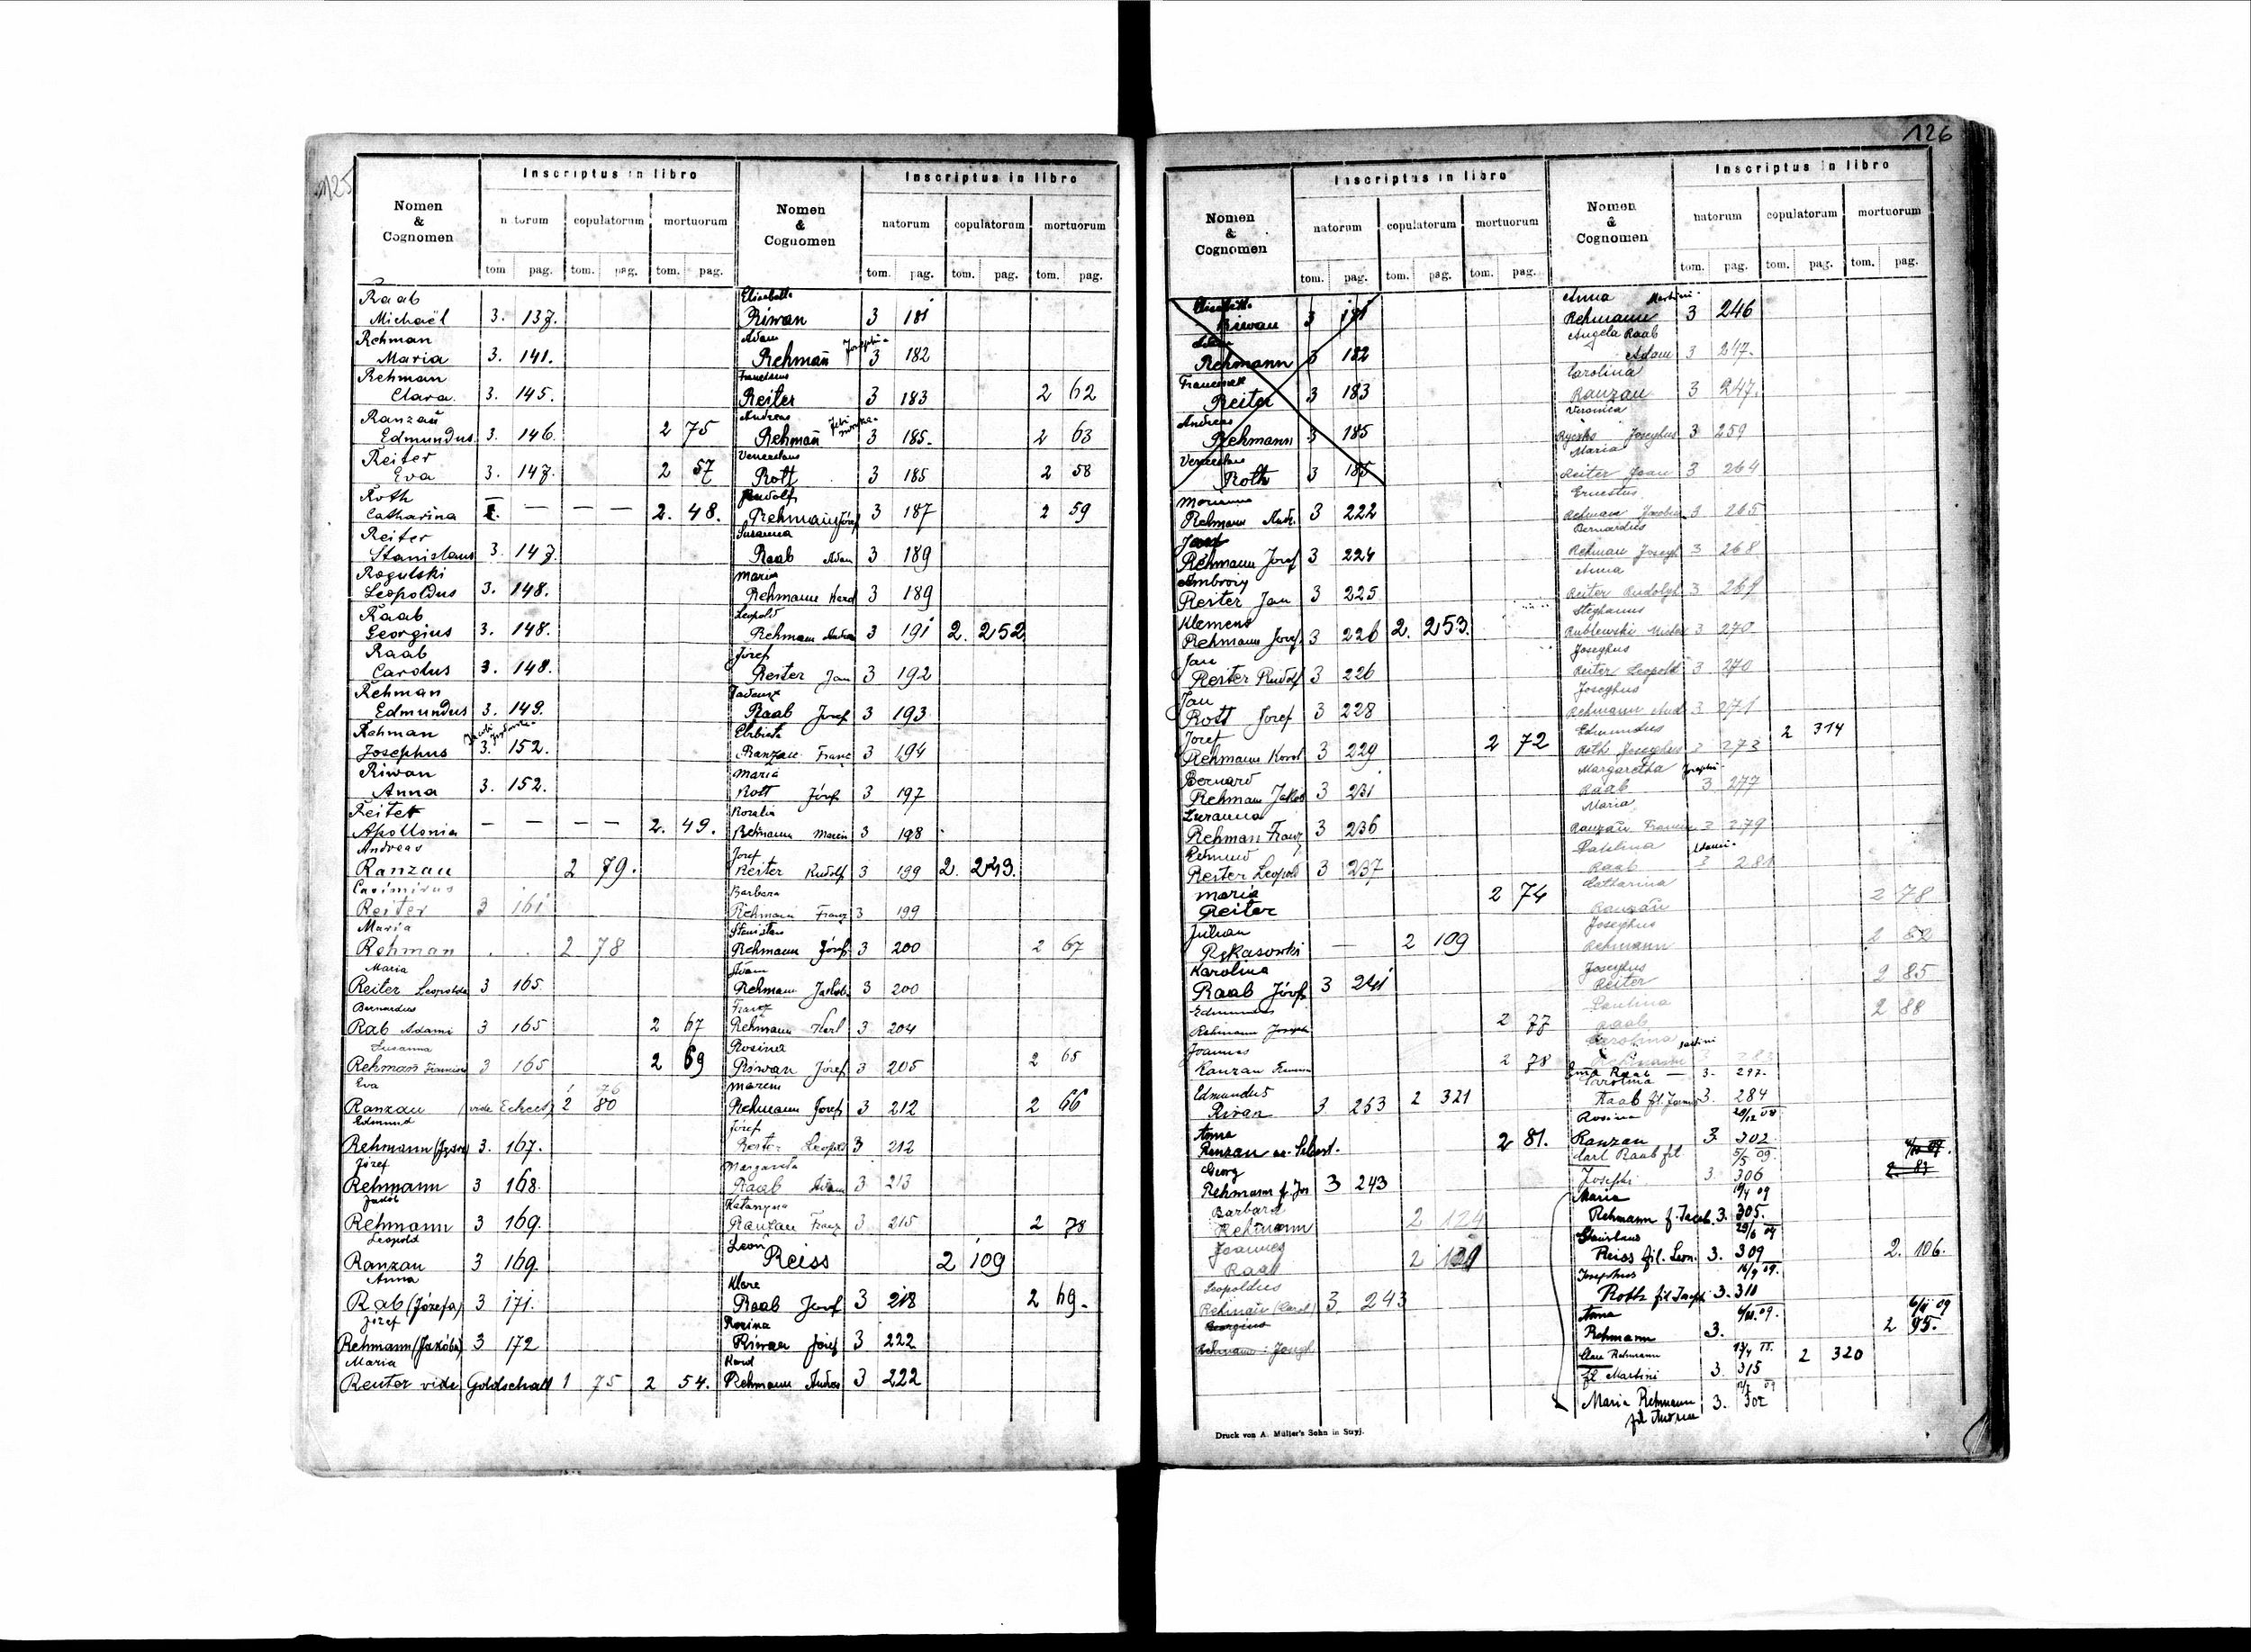 125
Inscriptus in libro
Nomen & Cognomen
n torum copulatorum mortuorum
tom pag. tom. pag. tom. pag.
Raab
Michaël 3. 137.
Rehman
Maria 3. 141.
Rehman
Clara. 3. 145.
Ranzau
Edmundus 3. 146. 2 75
Reiter
Eva 3. 147. 2 57
Roth
Catharina — — — 2. 48.
Reiter
Stanislaus 3. 147.
Rogulski
Leopoldus 3. 148.
Raab
Georgius 3. 148.
Raab
Carolus 3. 148.
Rehman
Edmundus 3. 149.
Rehman
Josephus 3. 152.
Riwan
Anna 3. 152.
Reiter
Apollonia — — — — 2. 49.
Andreas
Ranzau 2 79.
Casimirus
Reiter 3 161
Maria
Rehman . . 2 78
Maria
Reiter Leopolda 3 165.
Bernardus
Rab Adami 3 165 2 67
Susanna
Rehman Francisci 3 165 2 69
Eva 1 76
Ranzau 2 80
Edmund
Rehmann 3. 167.
Józef
Rehmann 3 168.
Jakób
Rehmann 3 169.
Leopold
Ranzau 3 169.
Anna
Rab (Józefa) 3 171.
Józef
Rehmann (Jakóba) 3 172
Maria
Reuter vide Goldschall 1 75 2 54.
Inscriptus in libro
Nomen & Cognomen
natorum copulatorum mortuorum
tom. pag. tom. pag. tom. pag.
Elisabetha
Riwan 3 181
Adam
Rehman 3 182
Franciscus
Reiter 3 183 2 62
Andreas
Rehman 3 185. 2 63
Venceslaus
Rott 3 185 2 58
Rudolf
Rehmann Józef 3 187 2 59
Susanna
Raab Adam 3 189
Maria
Rehmann Karol 3 189
Leopold
Rehmann Andrea 3 191 2. 252
Józef
Reiter Jan 3 192
Tadeusz
Raab Józef 3 193
Elżbieta
Ranzau Franc 3 194
Maria
Rott Józef 3 197
Rozalia
Rehmann Marcin 3 198
Josef
Reiter Rudolf 3 199 2. 249.
Barbara
Rehmann Franz 3 199
Stanislau
Rehmann Józef 3 200 2 67
Adam
Rehmann Jakób 3 200
Franz
Rehmann Karl 3 204
Rosina
Riwan Józef 3 205 2 65
Marcin
Rehmann Josef 3 212 2 66
Józef
Reiter Leopold 3 212
Margareta
Raab Adam 3 213
Katarzyna
Ranzau Franz 3 215 2 78
Leon
Reiss 2 109
Klara
Raab Josef 3 218 2 69.
Rozina
Riwan Józef 3 222
Karol
Rehmann Andreas 3 222
126
Inscriptus in libro
Nomen & Cognomen
natorum copulatorum mortuorum
tom. pag. tom. pag. tom. pag.
Elisabetha
Riwan 3 181
Adam
Rehmann 3 182
Franciszek
Reiter 3 183
Andreas
Rehmann 3 185
Venceslaus
Roth 3 185
Marianna
Rehmann Andr. 3 222
Józef
Rehmann Josef 3 224
Ambroży
Reiter Jan 3 225
Klemens
Rehmann Josef 3 226 2. 253.
Jan
Reiter Rudolf 3 226
Jan
Rott Josef 3 228
Josef
Rehmann Karol 3 229 2 72
Bernard
Rehmann Jakob 3 231
Zuzanna
Rehman Franz 3 236
Edmund
Reiter Leopold 3 237
Maria
Reiter 2 74
Julian
Rękasowski — 2 109
Karolina
Raab Józef 3 241
Edmundus
Rehmann Joseph 2 77
Joannes
Ranzau 2 78
Edmundus
Riwan 3 253 2 321
Anna
Ranzau 2 81.
Georg
Rehmann f. Jos 3 243
Barbara
Rehmann 2 124
Joannes
Raab 2
Leopoldus
Rehman (Carol) 3 243
Georgius
Rehmann: Joseph
Druck von A. Müller's Sohn in Stryj.
Inscriptus in libro
Nomen & Cognomen
natorum copulatorum mortuorum
tom. pag. tom. pag. tom. pag.
Anna Martini
Rehmann 3 246
Angela Raab
Adam 3 247.
Carolina
Ranzau 3 247.
Veronica
Josephus 3 259
Maria
Reiter Joan 3 264
Ernestus
Rehman Jacobus 3 265
Bernardus
Rehman Joseph 3 268
Anna
Reiter Rudolph 3 269
Stephanus
Rublewski 3 270
Josephus
Reiter Leopold 3 270
Josephus
Rehmann And 3 271
Edmundus 2 314
Roth Josephus 3 273
Margaretha Josephi
Raab 3 277
Maria
Ranzau 3 279
Paulina Adami
Raab 3 281
Catharina
Ranzau 2 78
Josephus
Rehmann 2 82
Josephus
Reiter 2 85
Paulina
Raab 2 88
Carolina Martini
Rehmann 3 283
Raab — 3. 297.
Carolina
Raab fil. 3. 284
Rosina 20/12 08
Ranzau 3. 302
Carl Raab fil 5/5 09.
Josephi 3. 306 2 87
Maria 19/4 09
Rehmann f. Jacob. 3. 305.
Stanislaus 29/6 09
Reiss fil. Leon. 3. 309 2. 106.
Josephus 16/9 09.
Roth fil Joseph 3. 310
Anna 09. 6/11 09
Rehmann 3. 2 95.
Clara Rehmann 2 320
fil Martini 3. 315
Maria Rehmann 3. 302
fil Andreae